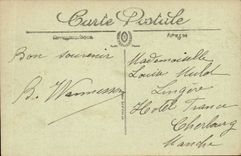 Carte Postale
Correspondance
Adresse
Bon souvenir
Mademoiselle
Louise
Lingère
Hotel France
Cherbourg
Manche